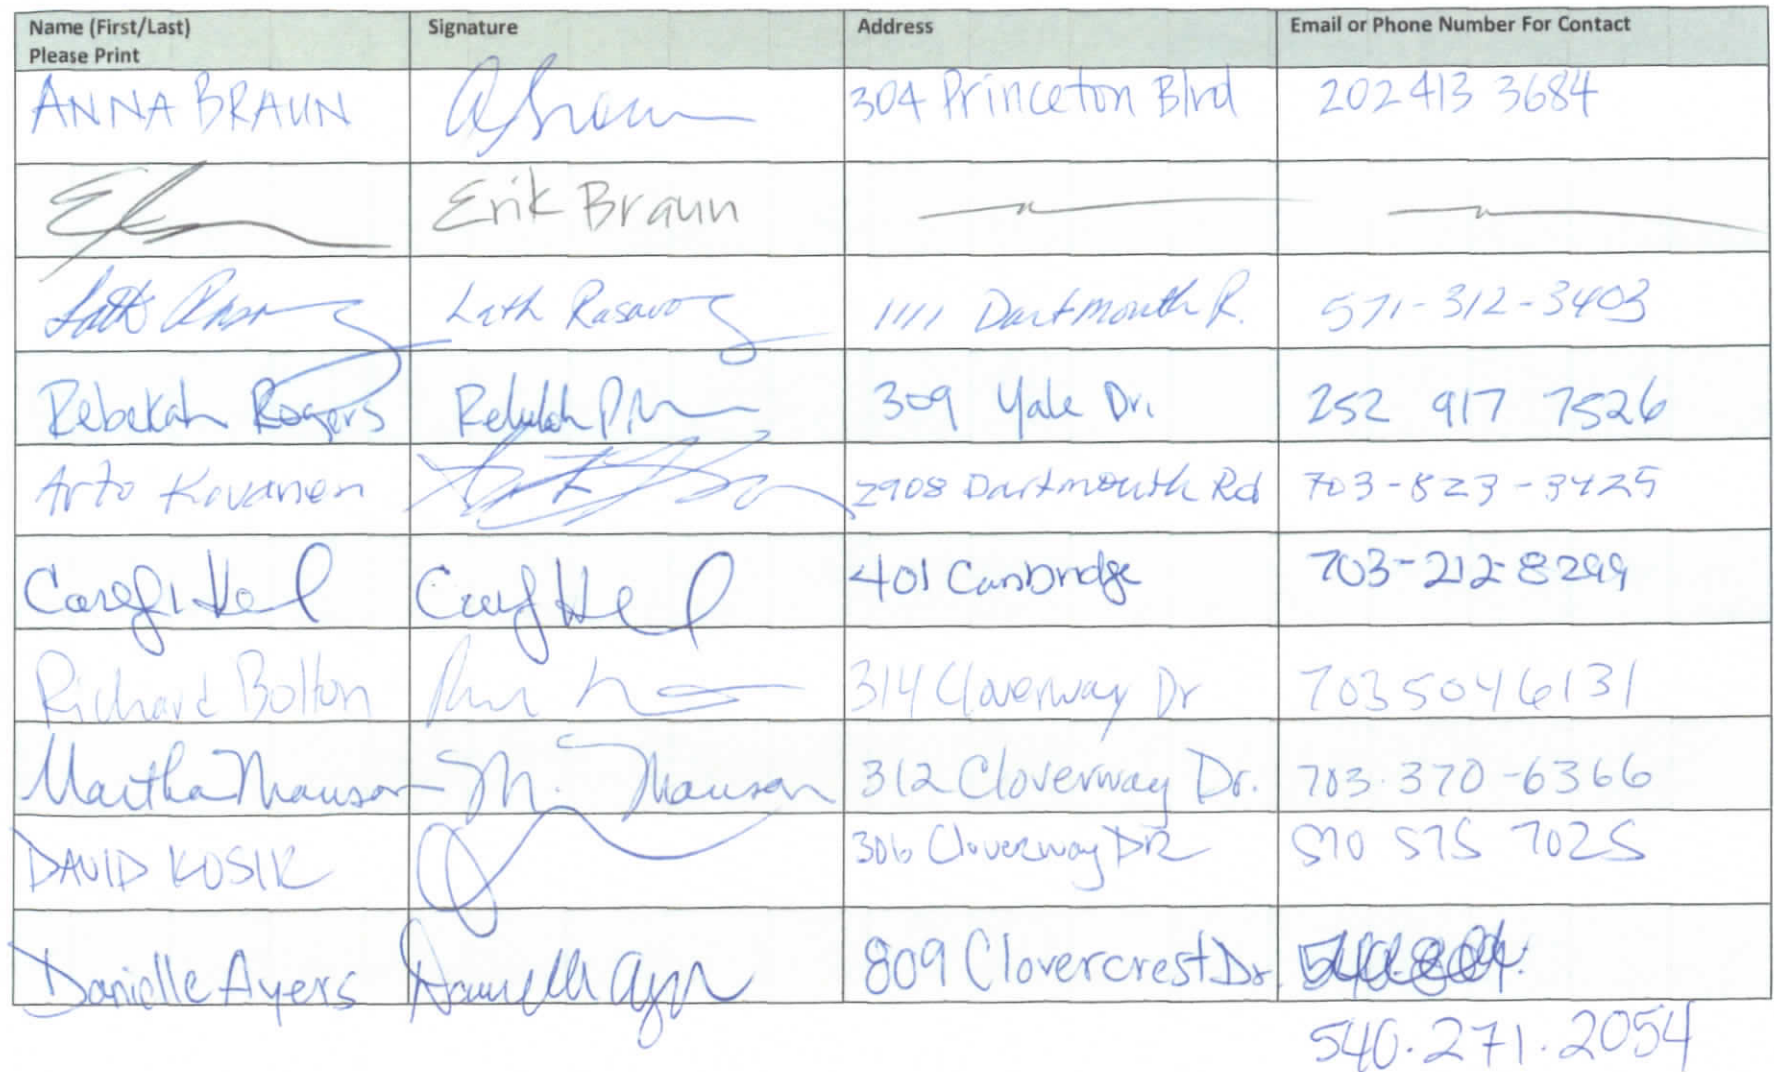 Name (First/Last) Signature Address Email or Phone Number For Contact
Please Print
ANNA BRAUN 304 Princeton Blvd 202 413 3684
Erik Braun
Lath 1111 Dartmouth R. 571-312-3403
Rebekah Rogers 309 Yale Dr. 252 917 7526
Arto Kovanen 2908 Dartmouth Rd 703-823-3425
401 Cambridge 703-212-8299
Richard Bolton 314 Cloverway Dr 703 504 6131
Martha Mauson M. Mauson 312 Cloverway Dr. 703.370-6366
DAVID KOSIK 306 Cloverway DR 570 575 7025
Danielle Ayers 809 Clovercrest Dr.
540.271.2054